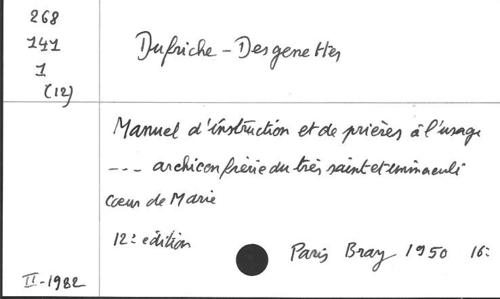 268
141
1
(12)
Dufriche - Desgenettes
Manuel d'instruction et de prières à l'usage
--- archiconfrérie du très saint et immaculé
cœur de Marie
12e édition
Paris Bray 1950 16:
II-1982